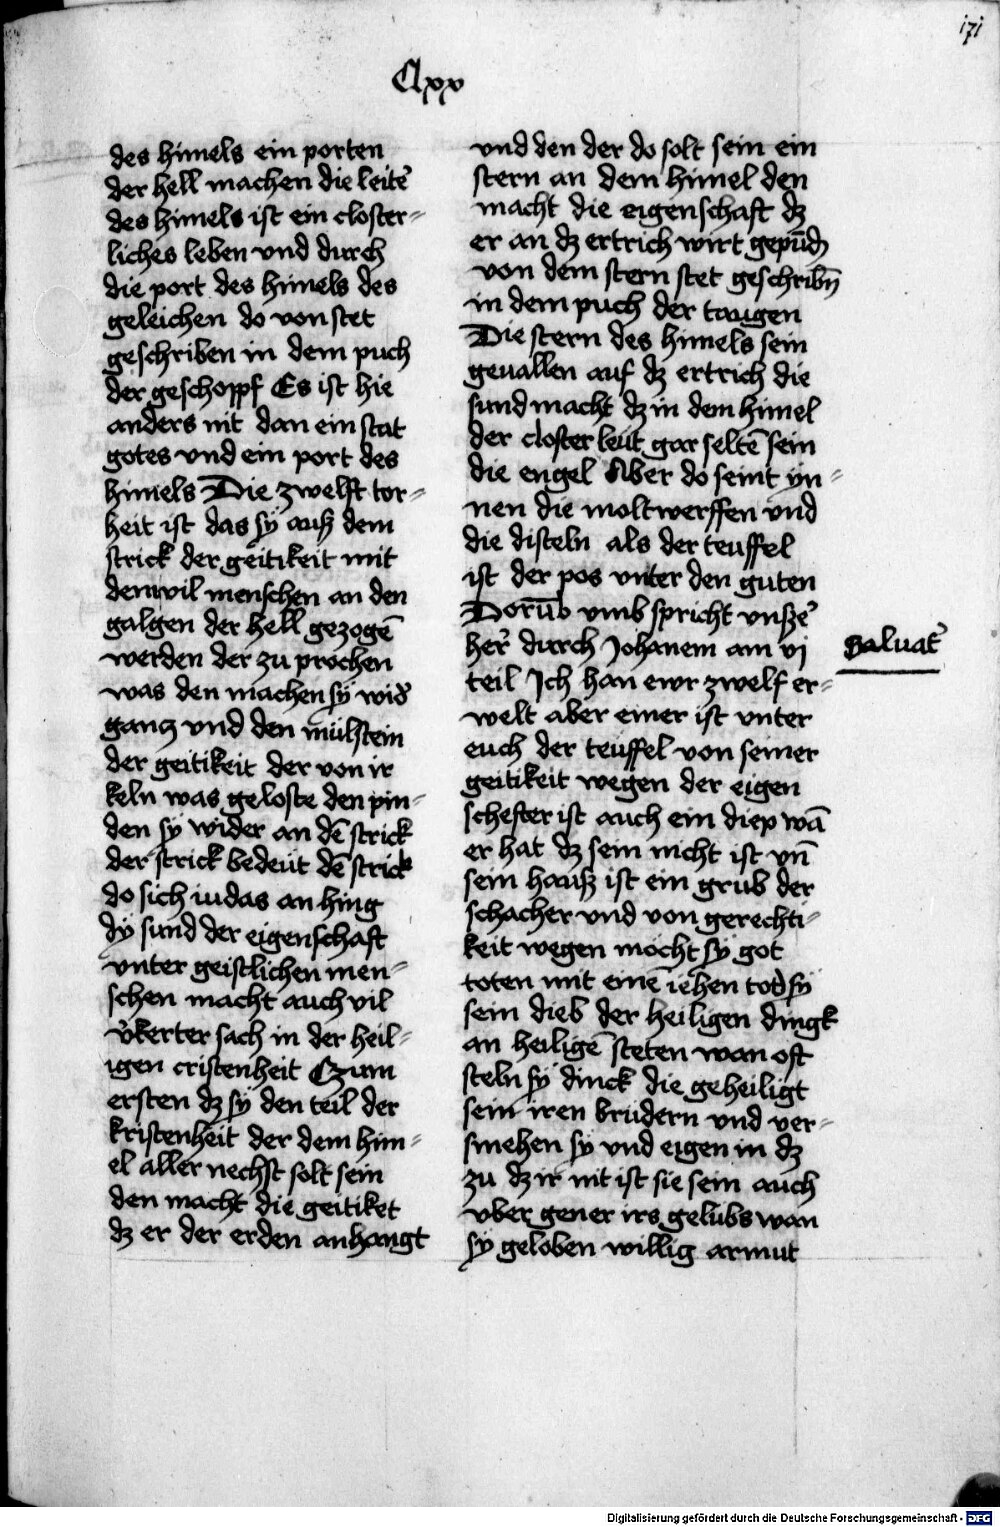 171
Clxx
des himels ein porten
der hell machen die leite᷑
des himels ist ein closter=
liches leben vnd durch
die port des himels des
geleichen do von stet
geschriben in dem puch
der geschoppf Es ist hie
anders nit dan ein stat
gotes vnd ein port des
himels Die zwelft tor=
heit ist das sÿ auß dem
strick der geitikeit mit
dem vil menschen an den
galgen der hell gezogē
werden der zu prochen
was den machen sÿ wid᷑
gancz vnd den mülstein
der geitikeit der von ir
keln was geloste den pin=
den sÿ wider an dē strick
der strick bedeut dē strick
do sich iudas an hing
dÿ sund der eigenschaft
vnter geistlichen men=
schen macht auch vil
v᷑kerter sach in der heil=
igen cristenheit Czum
ersten dz sÿ den teil der
kristenheit der dem him=
el aller nechst solt sein
den macht die geitiket
dz er der erden anhangt
vnd den der do solt sein ein
stern an dem himel den
macht die eigenschaft dz
er an dz ertrich wirt gepūdn
von dem stern stet geschribn̄
in dem puch der taugen
Die stern des himels sein
geuallen auf dz ertrich die
sund macht dz in dem himel
der closter leut gar seltē sein
die engel Aber do seint ÿn=
nen die moltwerffen vnd
die disteln als der teuffel
ist der pos vnter den guten
Dorūb vmb spricht vnsze᷑
her᷑ durch Johanem am vj
teil Ich han ewr zwelf er=
welt aber einer ist vnter
euch der teuffel von seiner
geitikeit wegen der eigen
schefter ist auch ein diep wā
er hat dz sein nicht ist vn̄
sein hauß ist ein grub der
schacher vnd von gerechti=
keit wegen mocht sÿ got
toten mit einē iehen tod sÿ
sein dieb der heiligen dingk
an heiligē steten wan oft
steln sÿ dinck die geheiligt
sein iren brüdern vnd ver=
smehen sÿ vnd eigen in dz
zu dz ir nit ist sie sein auch
vber gener irs gelubs wan
sÿ geloben willig armut
Saluat᷑
Digitalisierung gefördert durch die Deutsche Forschungsgemeinschaft - DFG